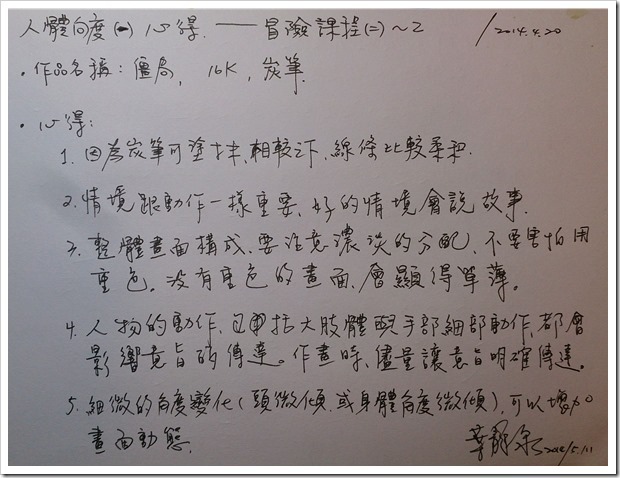 人體向度(一)心得. ── 冒險課程(二)~2 /2014.4.20
•作品名稱：僵局, 16K, 炭筆.
•心得：
1. 因為炭筆可塗抹、相較之下、線條比較柔和.
2. 情境跟動作一樣重要、好的情境會說故事.
3. 整體畫面構成、要注意濃淡的分配、不要害怕用
重色。沒有重色的畫面、會顯得單薄。
4. 人物的動作、包括大肢體跟手部細部動作、都會
影響意旨的傳達。作畫時、儘量讓意旨明確傳達。
5. 細微的角度變化(頭微傾.或身體角度微傾)、可以增加
畫面動態.
2014/5/11